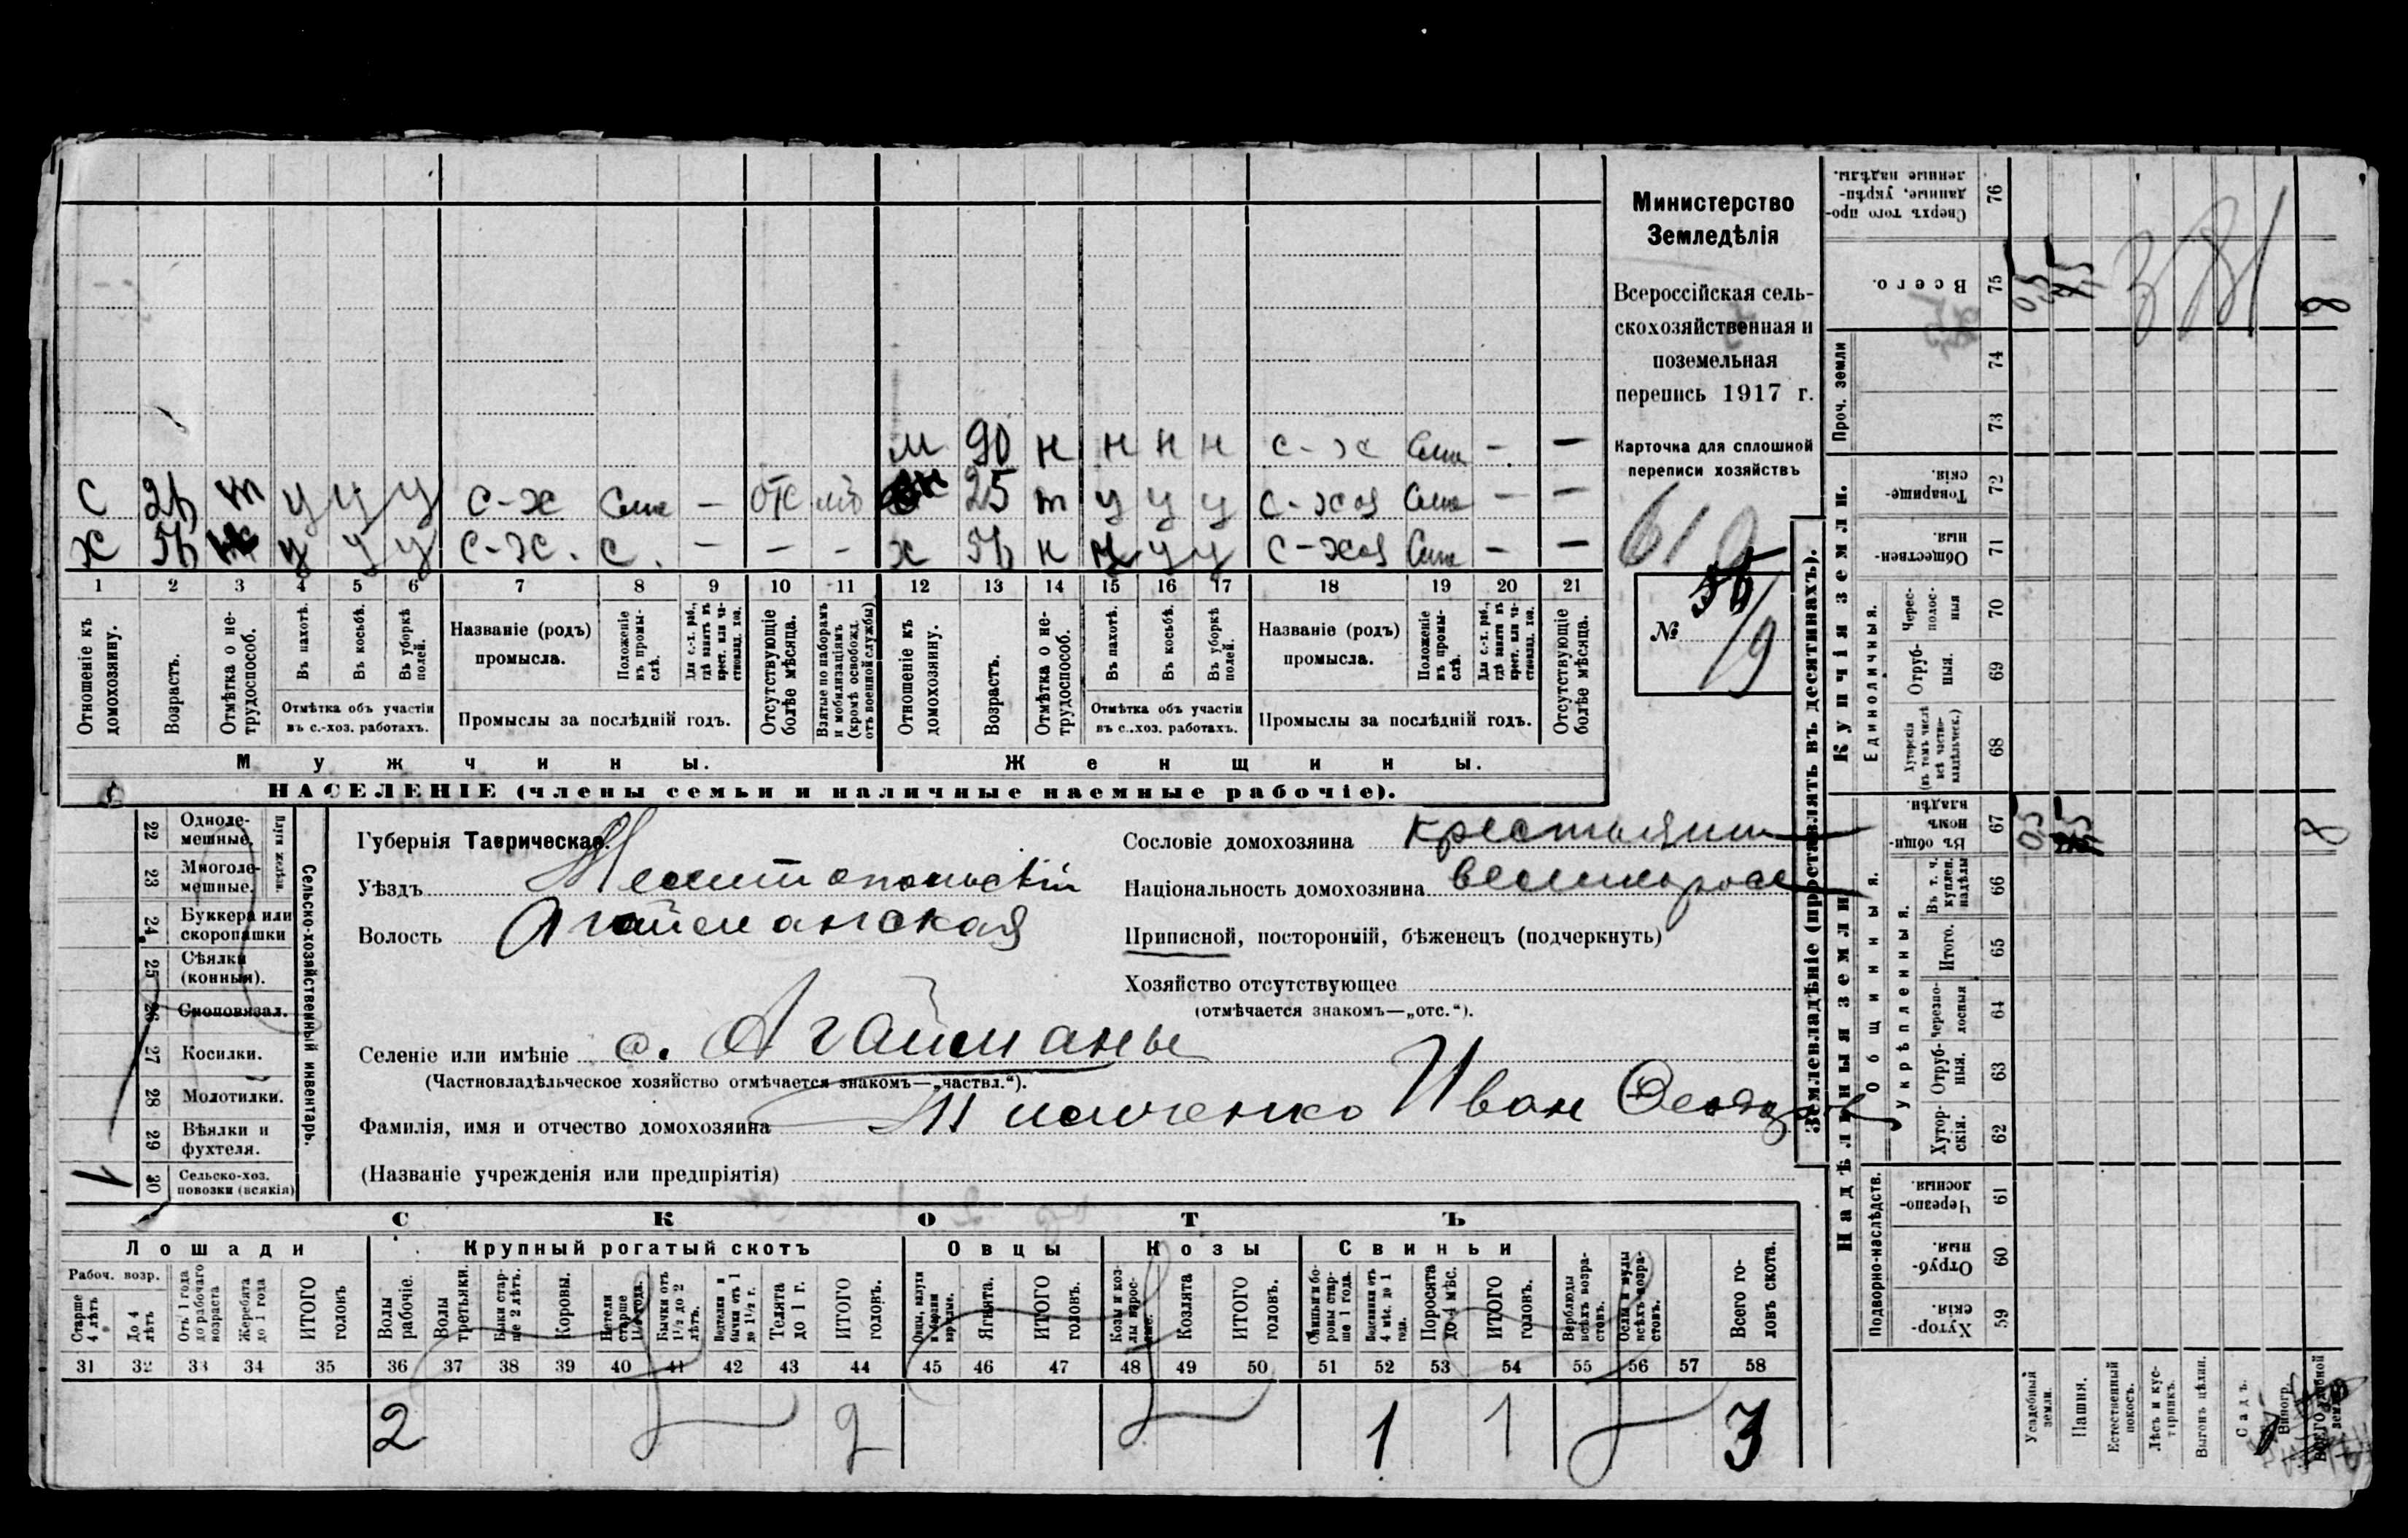 Министерство
Земледѣлія
Всероссійская сель-
скохозяйственная и
поземельная
перепись 1917 г.
Карточка для сплошной
переписи хозяйствъ
№
м 90 н н н н с-х – –
с т у у у с-х – 25 т у у у с-хоз – –
х у у у с-х. с. – – – х н у у у с-хоз – –
1 2 3 4 5 6 7 8 9 10 11 12 13 14 15 16 17 18 19 20 21
Отношеніе къ домохозяину.
Возрастъ.
Отмѣтка о не-трудоспособ.
Въ пахотѣ.
Въ косьбѣ.
Въ уборкѣ полей.
Отмѣтка объ участіи въ с.-хоз. работахъ.
Названіе (родъ) промысла.
Положеніе въ промы-слѣ.
Для с.-х. раб., гдѣ занятъ въ крест. или ча-стновлад. хоз.
Промыслы за послѣдній годъ.
Отсутствующіе болѣе мѣсяца.
Взятые по наборамъ и мобилизаціямъ (кромѣ освобожд. отъ военной службы)
Отношеніе къ домохозяину.
Возрастъ.
Отмѣтка о не-трудоспособ.
Въ пахотѣ.
Въ косьбѣ.
Въ уборкѣ полей.
Отмѣтка объ участіи въ с..хоз. работахъ.
Названіе (родъ) промысла.
Положеніе въ промы-слѣ.
Для с.-х. раб., гдѣ занятъ въ крест. или ча-стновлад. хоз.
Промыслы за послѣдній годъ.
Отсутствующіе болѣе мѣсяца.
Мужчины.
Женщины.
НАСЕЛЕНІЕ (члены семьи и наличные наемные рабочіе).
22 Одноле-мешные.
23 Многоле-мешные.
Плуги желѣзн.
24 Буккера или скоропашки
25 Сѣялки (конныя).
26 Сноповязал.
27 Косилки.
28 Молотилки.
29 Вѣялки и фухтеля.
30 Сельско-хоз. повозки (всякія) 1
Сельско-хозяйственный инвентарь.
Губернія Таврическая.
Уѣздъ Мелитопольскій
Волость Агайманская
Селеніе или имѣніе с. Агайманы
(Частновладѣльческое хозяйство отмѣчается знакомъ—„частвл.“).
Фамилія, имя и отчество домохозяина Иван
(Названіе учрежденія или предпріятія)
Сословіе домохозяина крестьянин
Національность домохозяина великоросс
Приписной, посторонній, бѣженецъ (подчеркнуть)
Хозяйство отсутствующее
(отмѣчается знакомъ—„отс.“).
СКОТЪ
Лошади
Крупный рогатый скотъ
Овцы
Козы
Свиньи
Рабоч. возр.
Старше 4 лѣтъ
До 4 лѣтъ
Отъ 1 года до рабочаго возраста
Жеребята до 1 года
ИТОГО головъ
Волы рабочіе.
Волы третьяки.
Быки стар-ше 2 лѣтъ.
Коровы.
Нетели старше 1½ года.
Бычки отъ 1½ до 2 лѣтъ.
Телята до 1 г.
ИТОГО головъ.
Ягнята.
ИТОГО головъ.
Козлята
ИТОГО головъ.
Поросята до 4 мѣс.
ИТОГО головъ.
Верблюды всѣхъ возра-стовъ.
Ослы и мулы всѣхъ возра-стовъ.
Всего го-ловъ скота.
31 32 33 34 35 36 37 38 39 40 41 42 43 44 45 46 47 48 49 50 51 52 53 54 55 56 57 58
2 2 1 1 3
Землевладѣніе (проставлять въ десятинахъ).
Надѣльныя земли
Купчія земли.
Проч. земли
Подворно-наслѣдств.
Общинныя.
Укрѣпленныя.
Единоличныя.
Хутор-скія 59
Отруб-ныя. 60
Черезпо-лосныя 61
Хутор-скія. 62
Отруб-ныя. 63
Черезпо-лосныя 64
Итого. 65
Въ т. ч. куплен. надѣлы 66
Въ общин-номъ владѣн. 67
Хуторскія (въ томъ числѣ всѣ частно-владѣльческ.) 68
Отруб-ныя. 69
Черес-полос-ныя 70
Обществен-ныя. 71
Товарище-скія. 72
73
74
Всего. 75
Сверхъ того про-данные, укрѣп-ленные надѣлы. 76
Усадебный земли.
Пашня.
Естественный покосъ.
Лѣсъ и кус-тарникъ.
Выгонъ цѣлин.
Садъ.
Виногр.
8
8